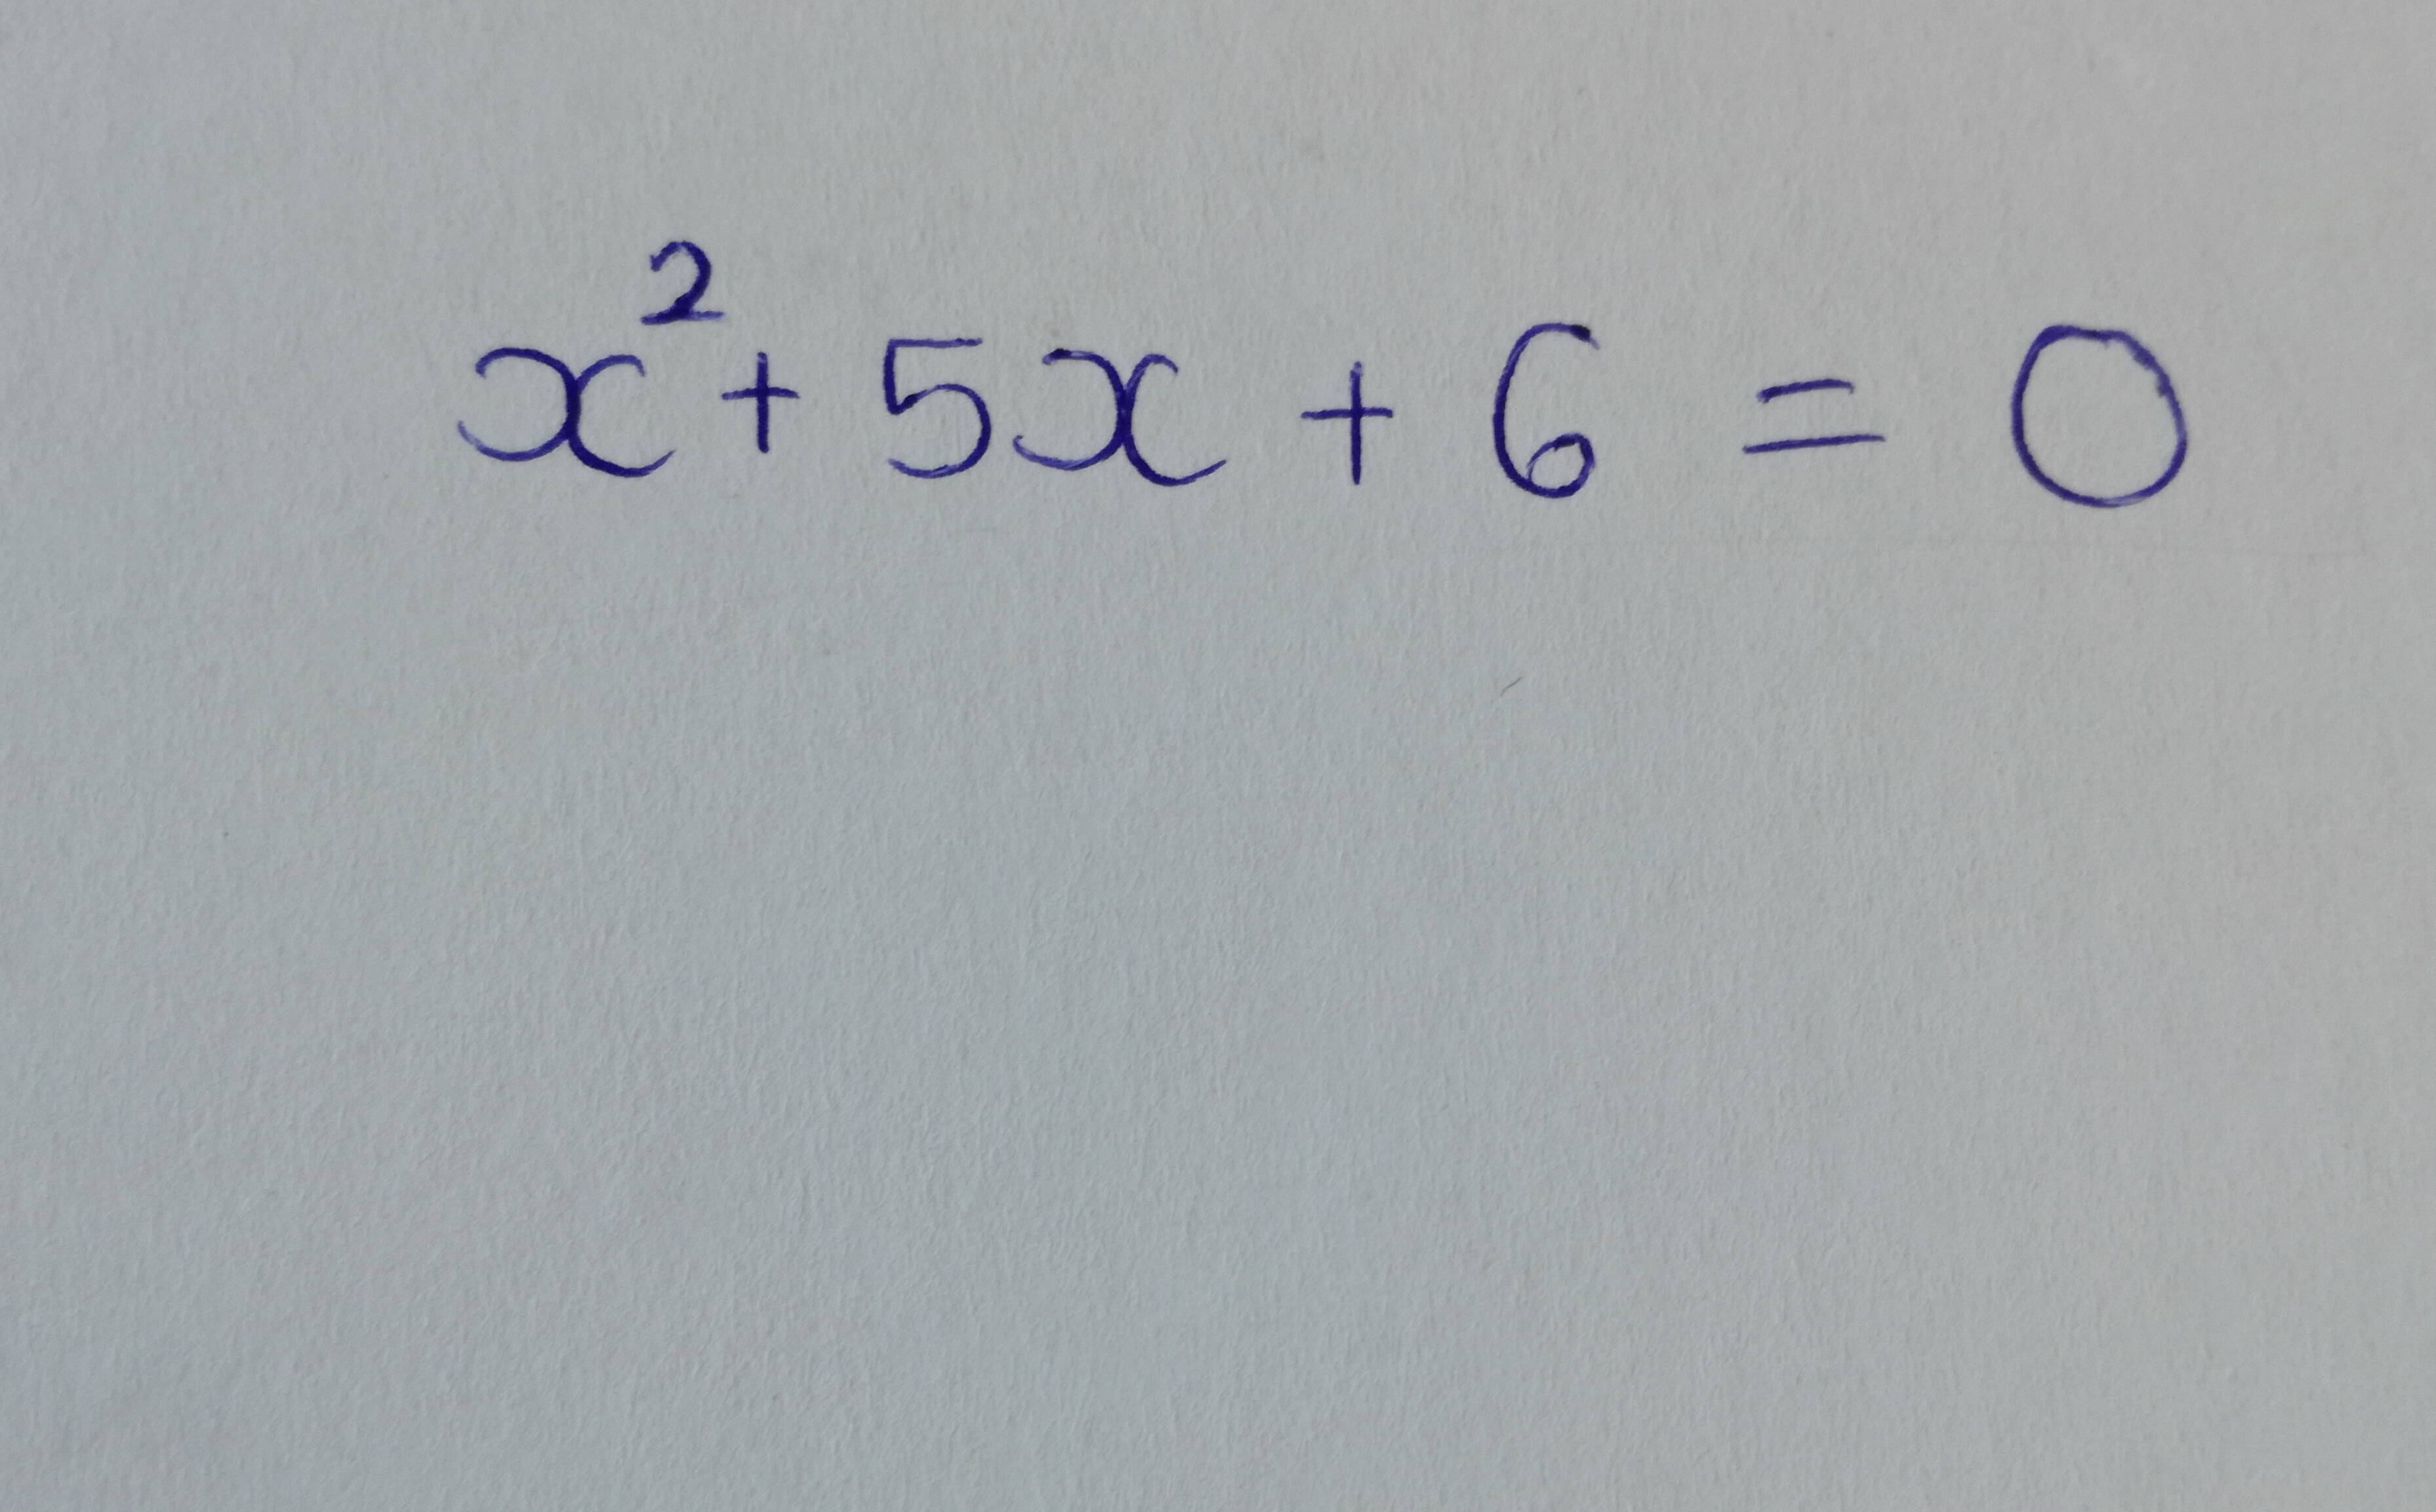 x² + 5x + 6 = 0